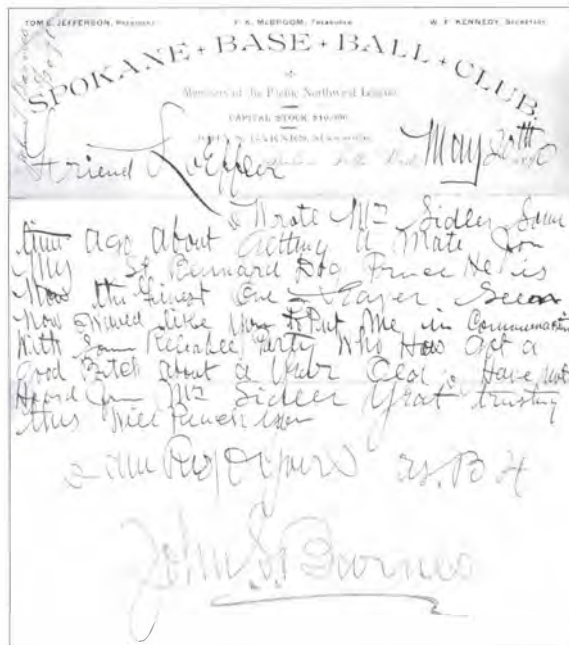 TOM E. JEFFERSON, President F. K. McBROOM, Treasurer W. F. KENNEDY, Secretary
SPOKANE + BASE + BALL + CLUB.
Members of the Pacific Northwest League
CAPITAL STOCK $10,000
JOHN S. BARNES, Manager
May 20th 1890
Friend Loeffler
I Wrote Mr Sidler Some
time ago about Getting a Mate for
My St Bernard Dog Prince He is
Now the finest One I Ever Seen
Now I Would like You to Put Me in
With Some Party Who Has Got a
Good Bitch about a Year Old I Have Not
Heard from Mr Sidler Yet trusting
this Will Reach You
I am Resp Yours as. B 4
John S. Barnes